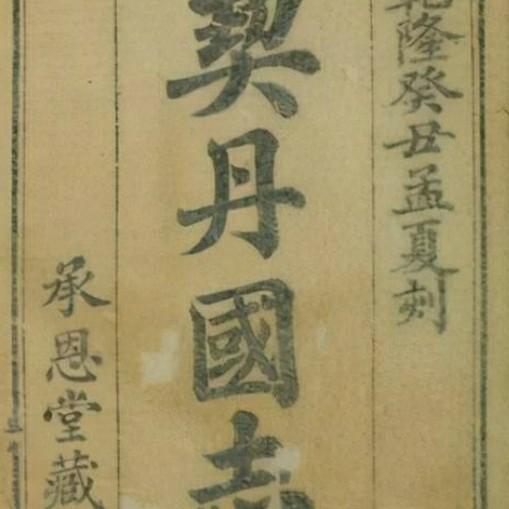 乾隆癸丑孟夏刻
契丹國志
承恩堂藏